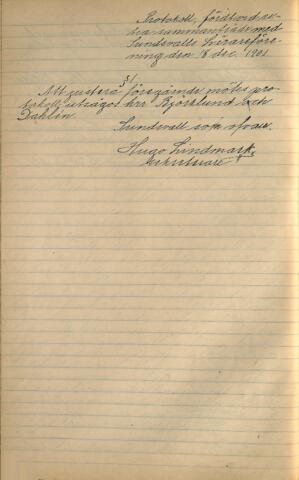 Protokoll, fördt vid
sammanträde med
Sundsvalls Lärareföre-
ning den 18 dec. 1901.
§1
Att justera föregående mötes pro-
tokoll utsågos hrr Björklund och
Dahlin.
Sundsvall som ofvan.
Hugo Lindmark,
sekreterare